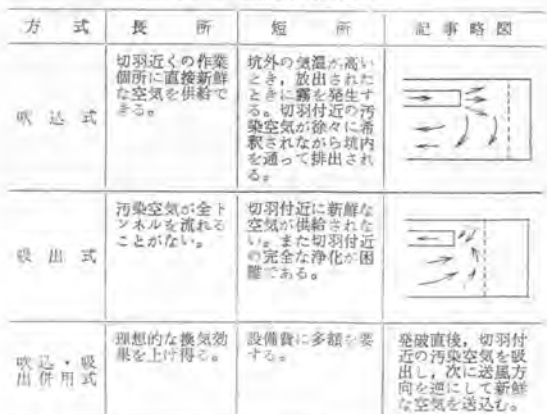 方式 長所 短所 記事略図
吹込式
切羽近くの作業
個所に直接新鮮
な空気を供給で
きる。
坑外の気温が高い
とき，放出された
ときに霧を発生す
る。切羽付近の汚
染空気が徐々に希
釈されながら坑内
を通って排出され
る。
吸出式
汚染空気が全ト
ンネルを流れる
ことがない。
切羽付近に新鮮な
空気が供給されな
い。また切羽付近
の完全な浄化が困
難である。
吹込・吸
出併用式
理想的な換気効
果を上げ得る。
設備費に多額を要
する。
発破直後，切羽付
近の汚染空気を吸
出し，次に送風方
向を逆にして新鮮
な空気を送込む。